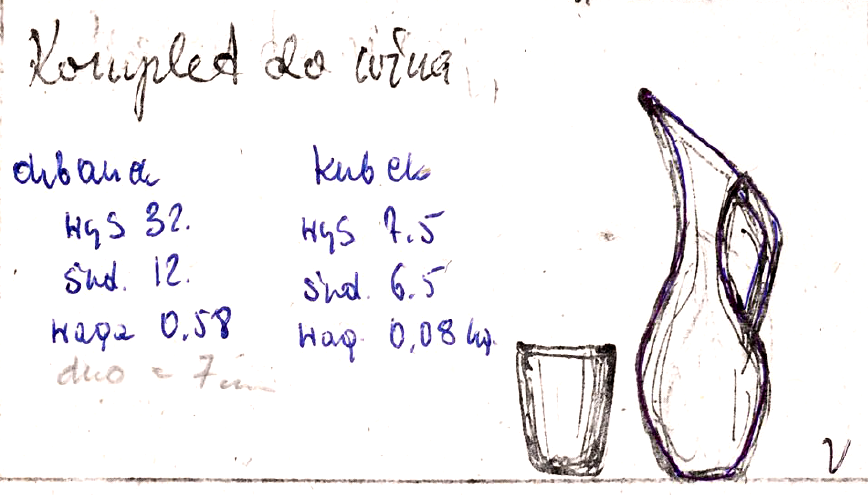 Komplet do wina
dzbanek
wys 32.
śrd. 12.
waga 0.58
dno - 7 cm
kubek
wys 7.5
śrd. 6.5
wag. 0,08 kg
V